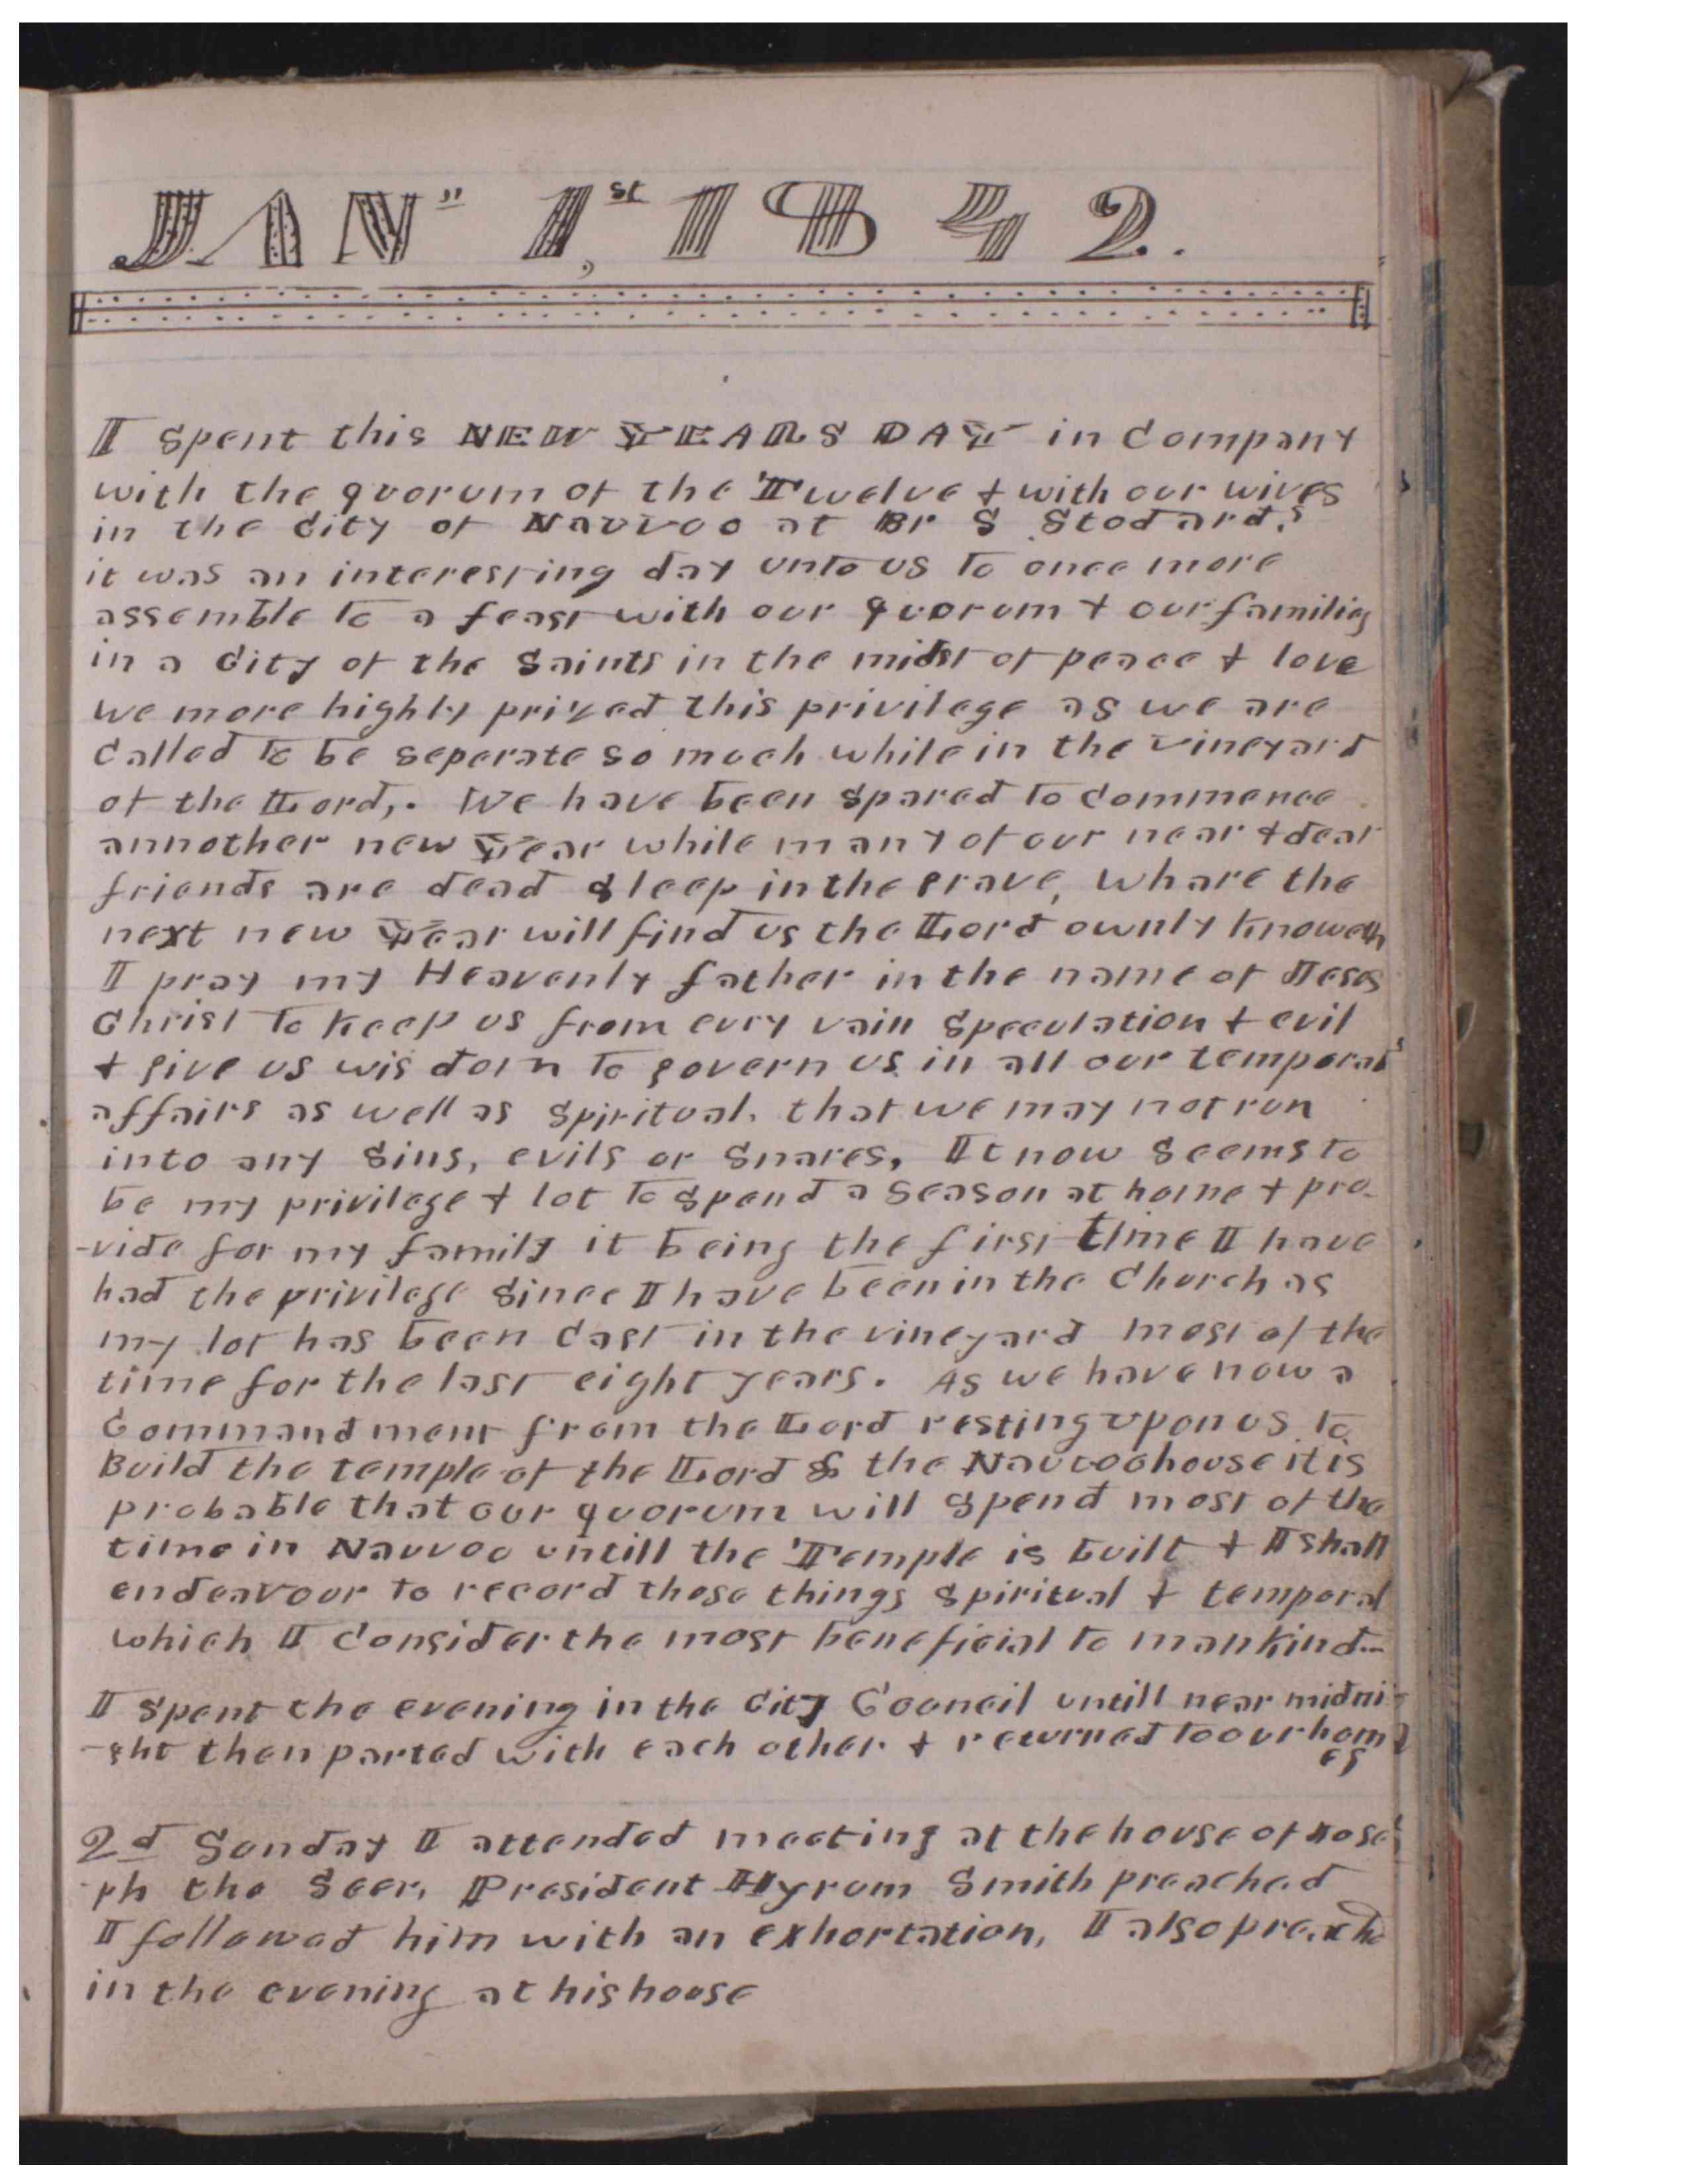 JAN" 1st, 1842.
I spent this NEW YEARS DAY in Company
with the quorum of the Twelve & with our wives
in the City of Nauvoo at Br S Stodards
it was an interesting day unto us to once more
assemble to a feast with our quorum & our families
in a City of the Saints in the midst of peace & love
we more highly prized this privilege as we are
Called to be seperate so much while in the vineyard
of the Lord,. We have been spared to Commence
annother new Year while many of our near & dear
friends are dead sleep in the grave, whare the
next new Year will find us the Lord ownly knoweth
I pray my Heavenly father in the name of Jesus
Christ to keep us from evry vain speculation & evil
& give us wisdom to govern us in all our temporal
affairs as well as spiritual. that we may not run
into any sins, evils or snares, It now seems to
be my privilege & lot to spend a season at home & pro-
-vide for my family it being the first time I have
had the privilege since I have been in the Church as
my lot has been Cast in the vineyard most of the
time for the last eight years. As we have now a
Commandment from the Lord resting upon us to
Build the temple of the Lord & the Nauvoo house it is
probable that our quorum will spend most of the
time in Nauvoo untill the Temple is built & I shall
endeavour to record those things spiritual & temporal
which I Consider the most beneficial to mankind--
I spent the evening in the City Council untill near midni-
-ght then parted with each other & returned to our homes
2d Sunday I attended meeting at the house of Jose-
ph the Seer. President Hyrum Smith preached
I followed him with an exhortation, I also preached
in the evening at his house